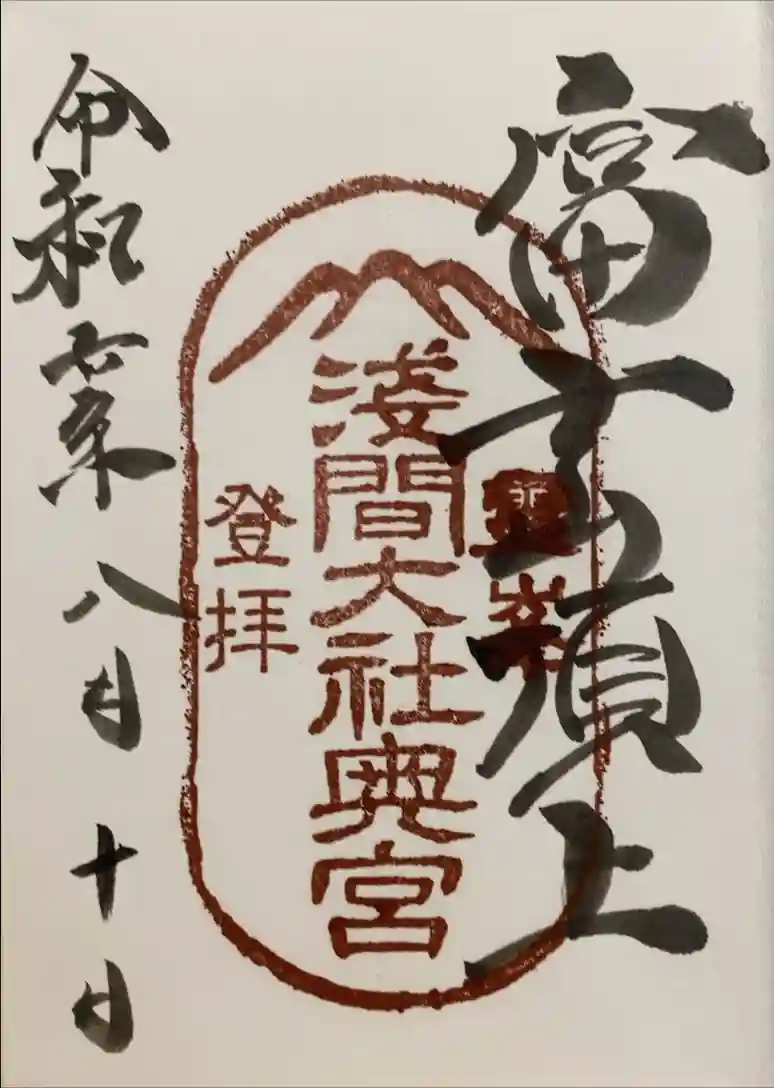 富士頂上
淺間大社奥宮
登拝
令和
年
八月
十日